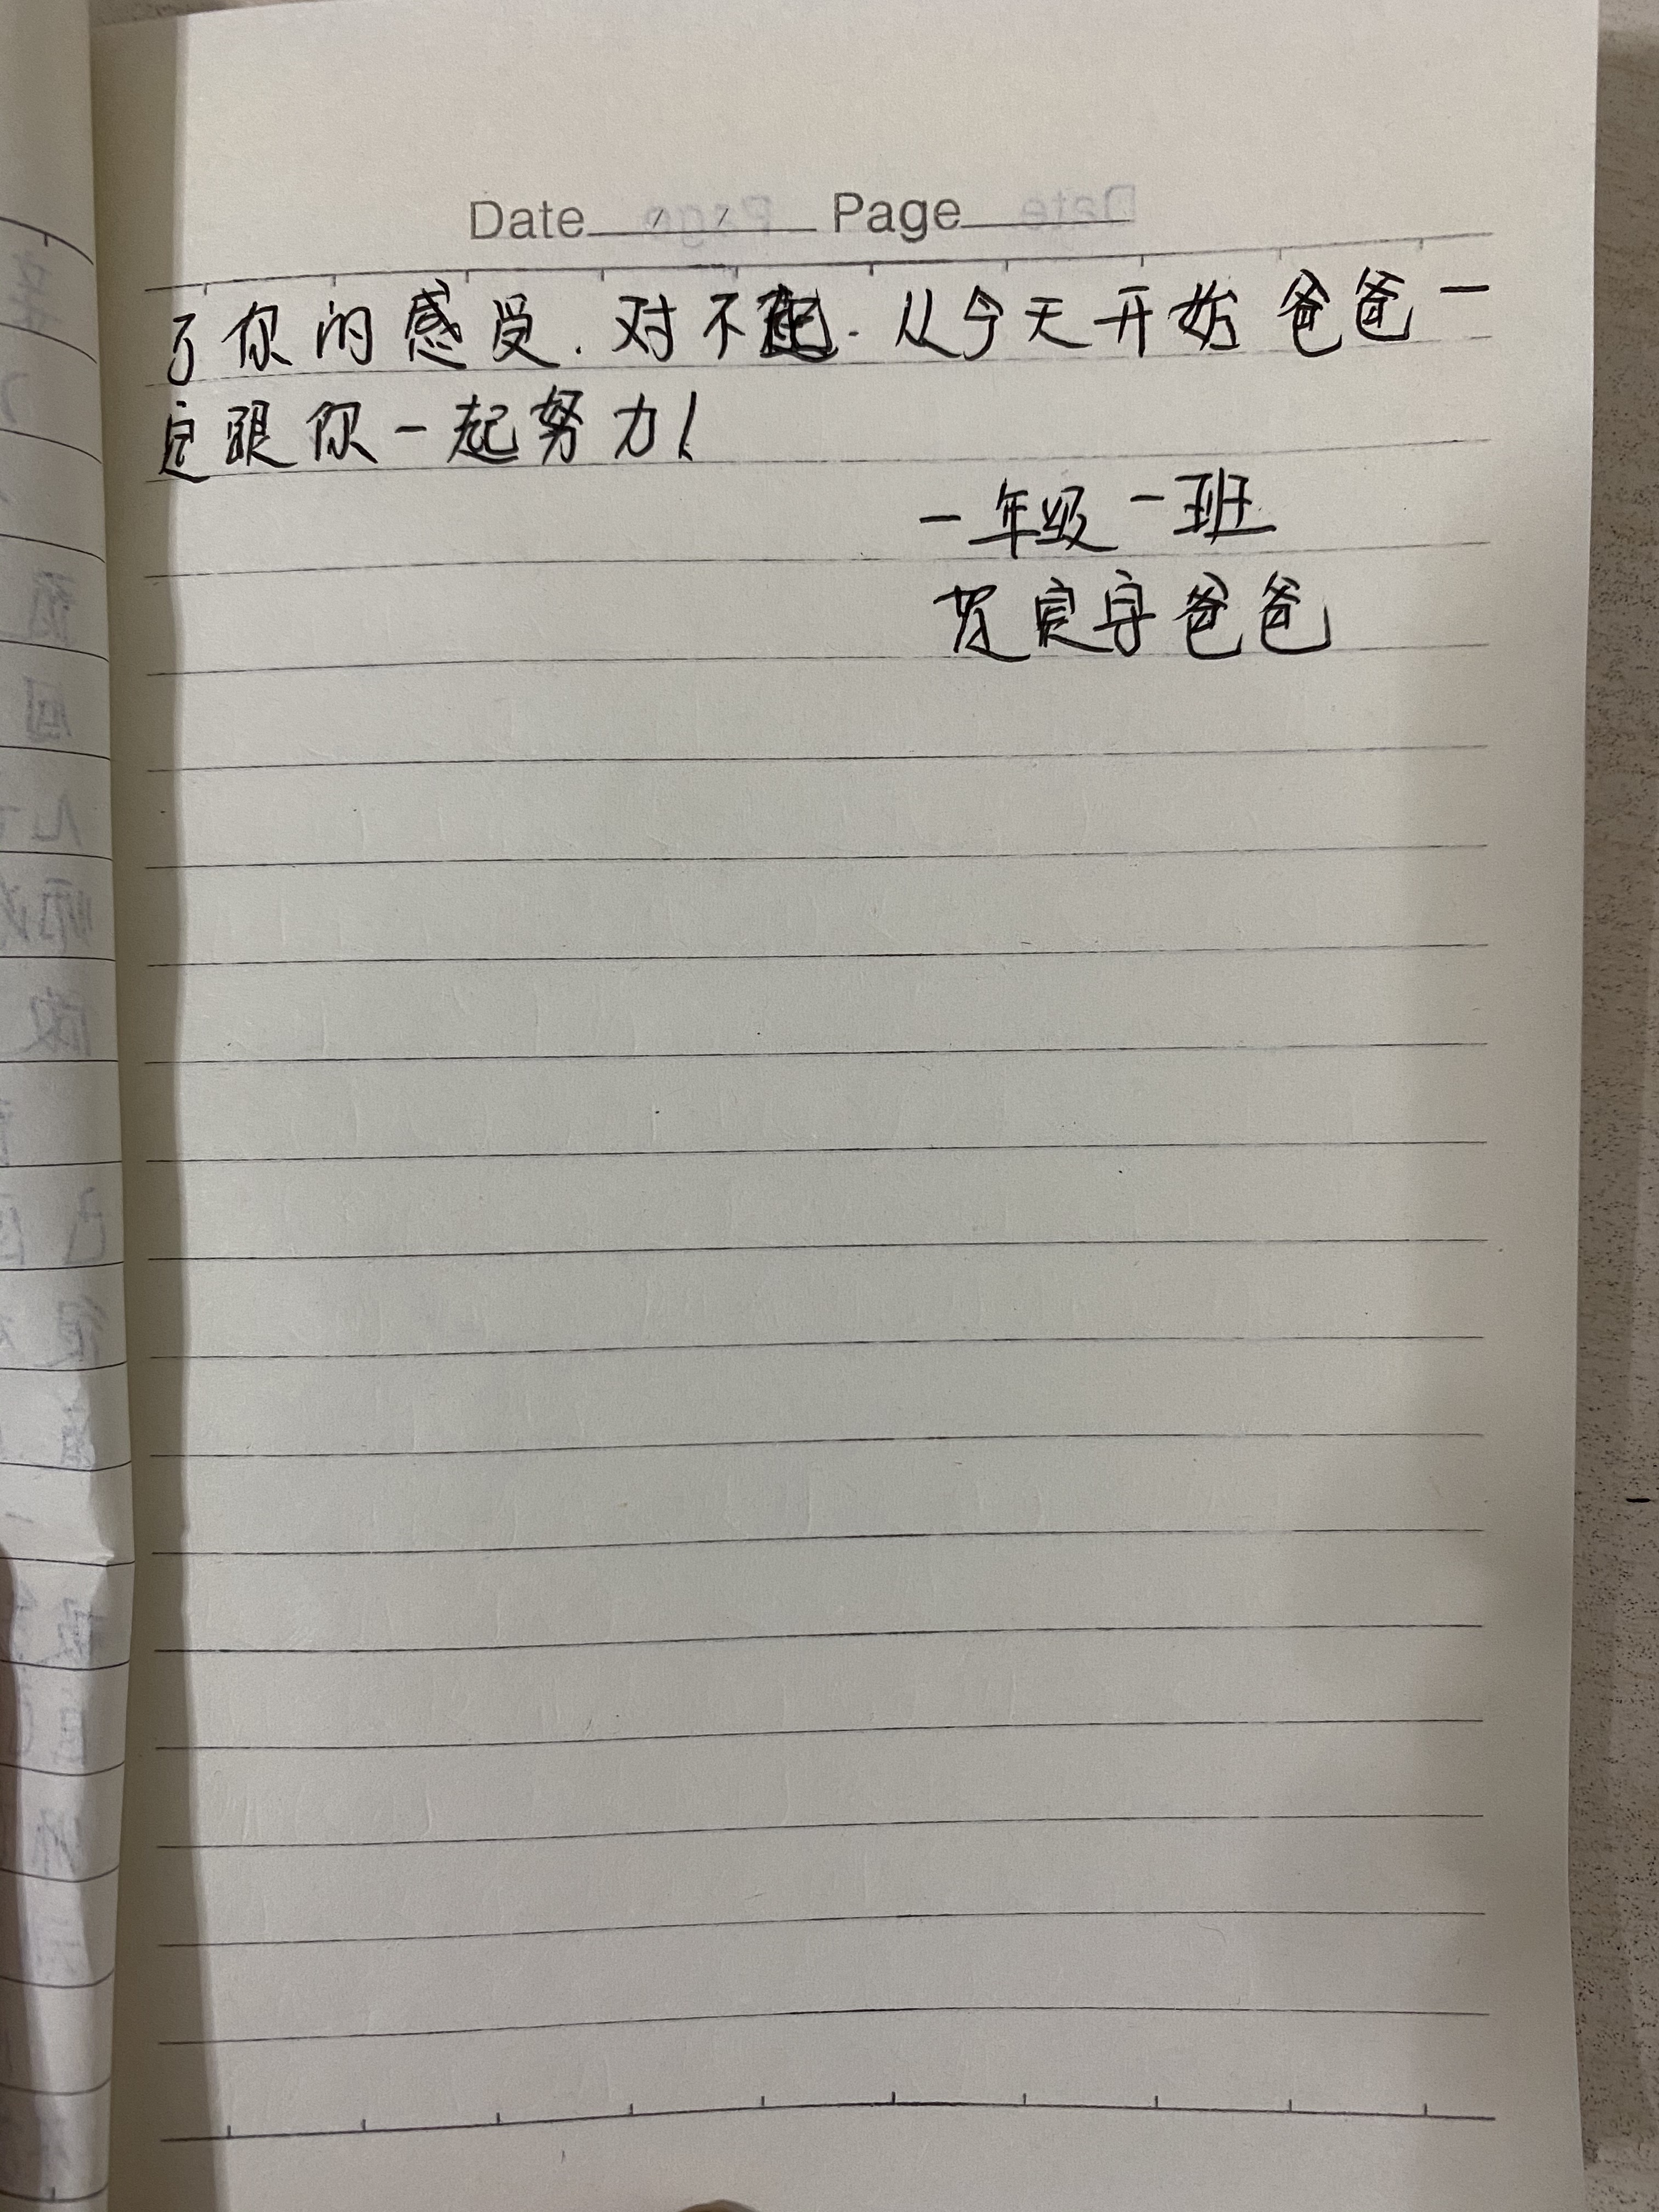 Date / / Page
了你的感受.对不起.从今天开始爸爸一
定跟你一起努力!
一年级一班
爸爸